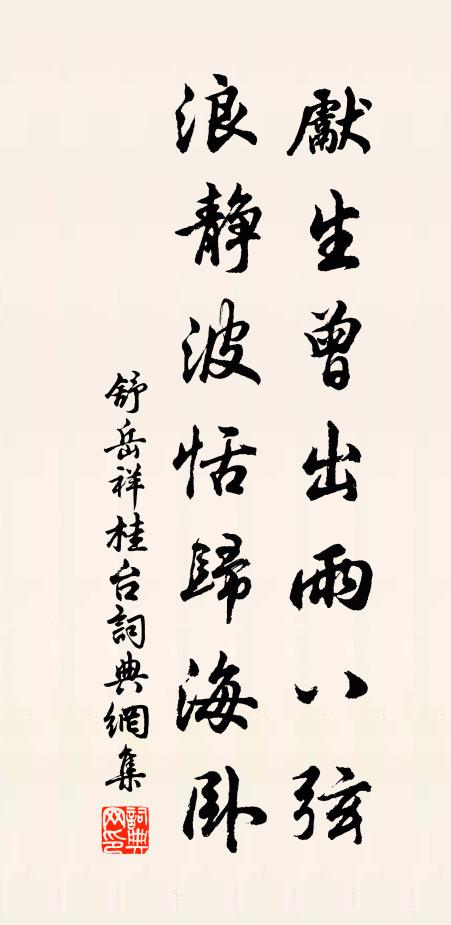 獻生曾出雨八弦
浪靜波恬歸海卧
舒岳祥桂台詞典網集
詞典網印